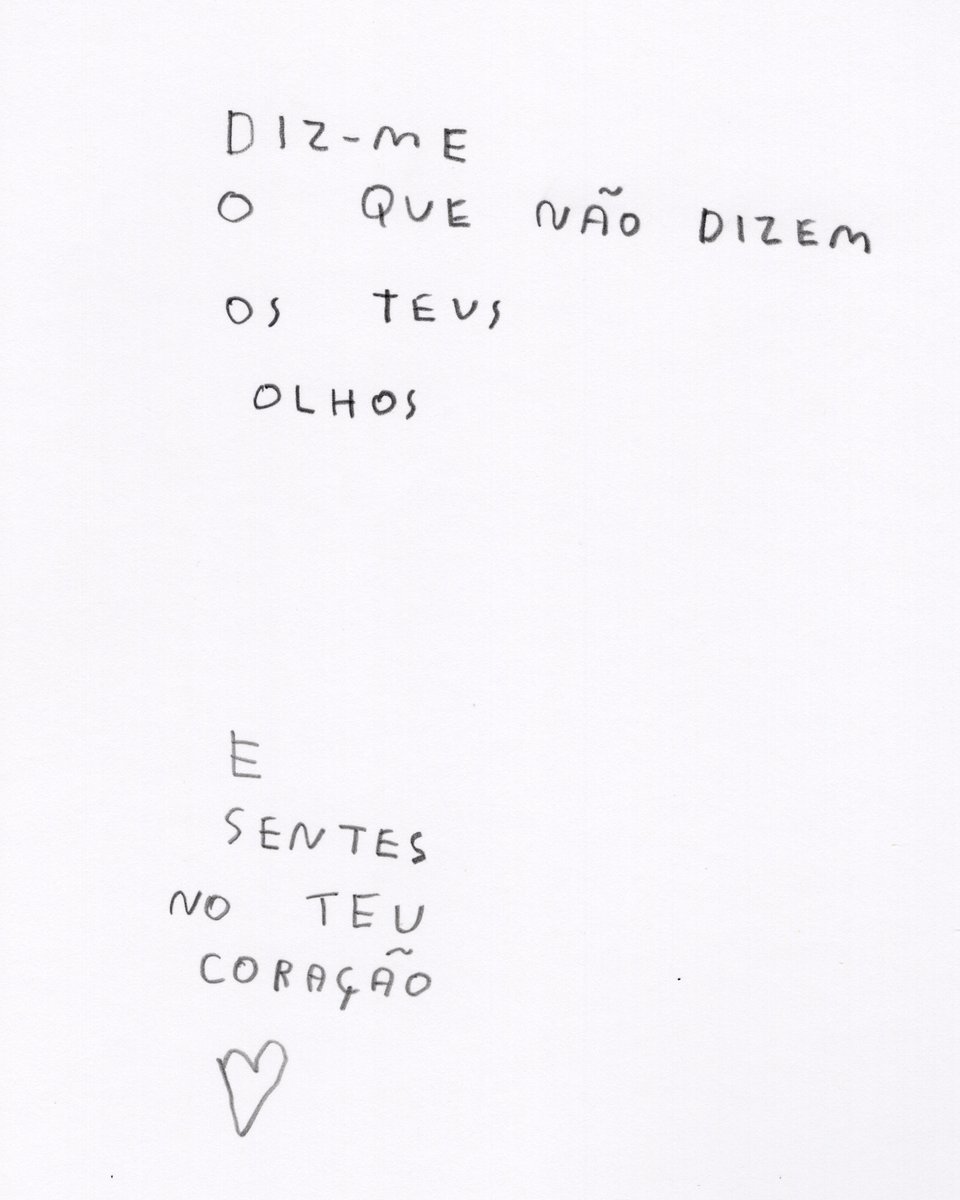 DIZ-ME
O QUE NÃO DIZEM
OS TEUS
OLHOS
E
SENTES
NO TEU
CORAÇÃO